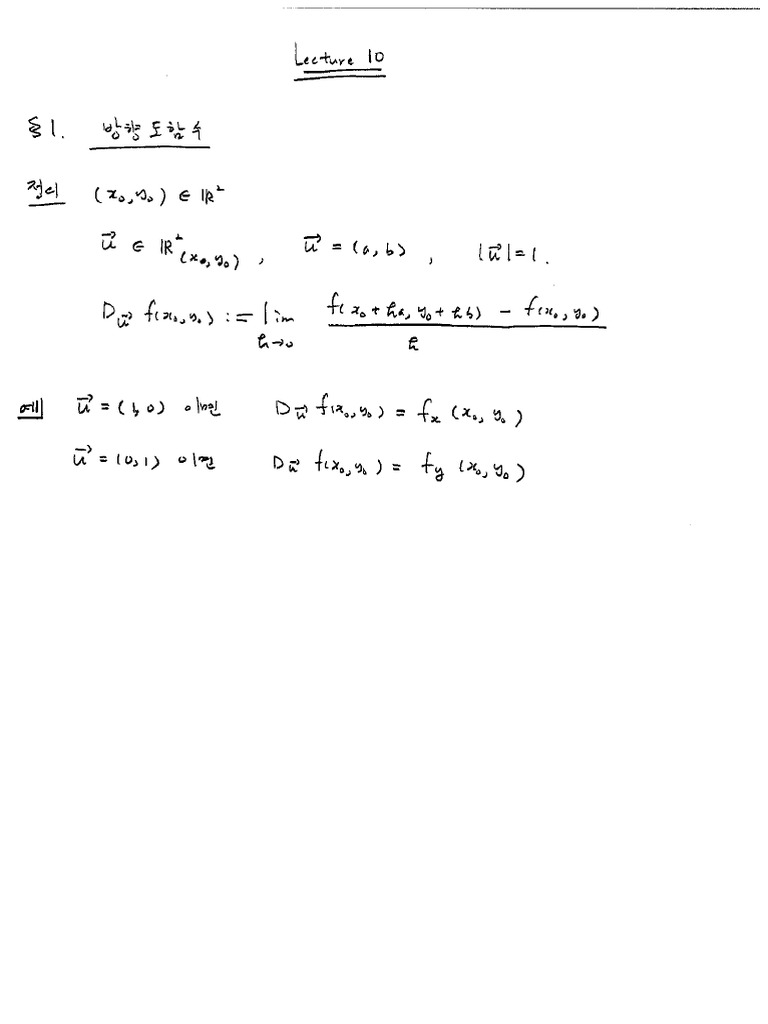 Lecture 10
§1. 방향도함수
정의 (x₀, y₀) ∈ ℝ²
u⃗ ∈ ℝ²₍ₓ₀, y₀₎ , u⃗ = (a, b) , |u⃗| = 1.
D_u⃗ f(x₀, y₀) := lim_{h→0} \frac{f(x₀ + ha, y₀ + hb) - f(x₀, y₀)}{h}
예 u⃗ = (1, 0) 이면 D_u⃗ f(x₀, y₀) = fₓ (x₀, y₀)
u⃗ = (0, 1) 이면 D_u⃗ f(x₀, y₀) = f_y (x₀, y₀)